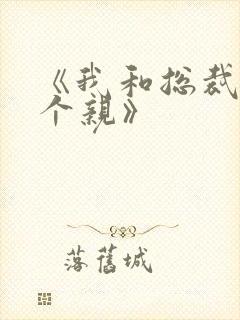 《我和总裁
个亲》
落舊城